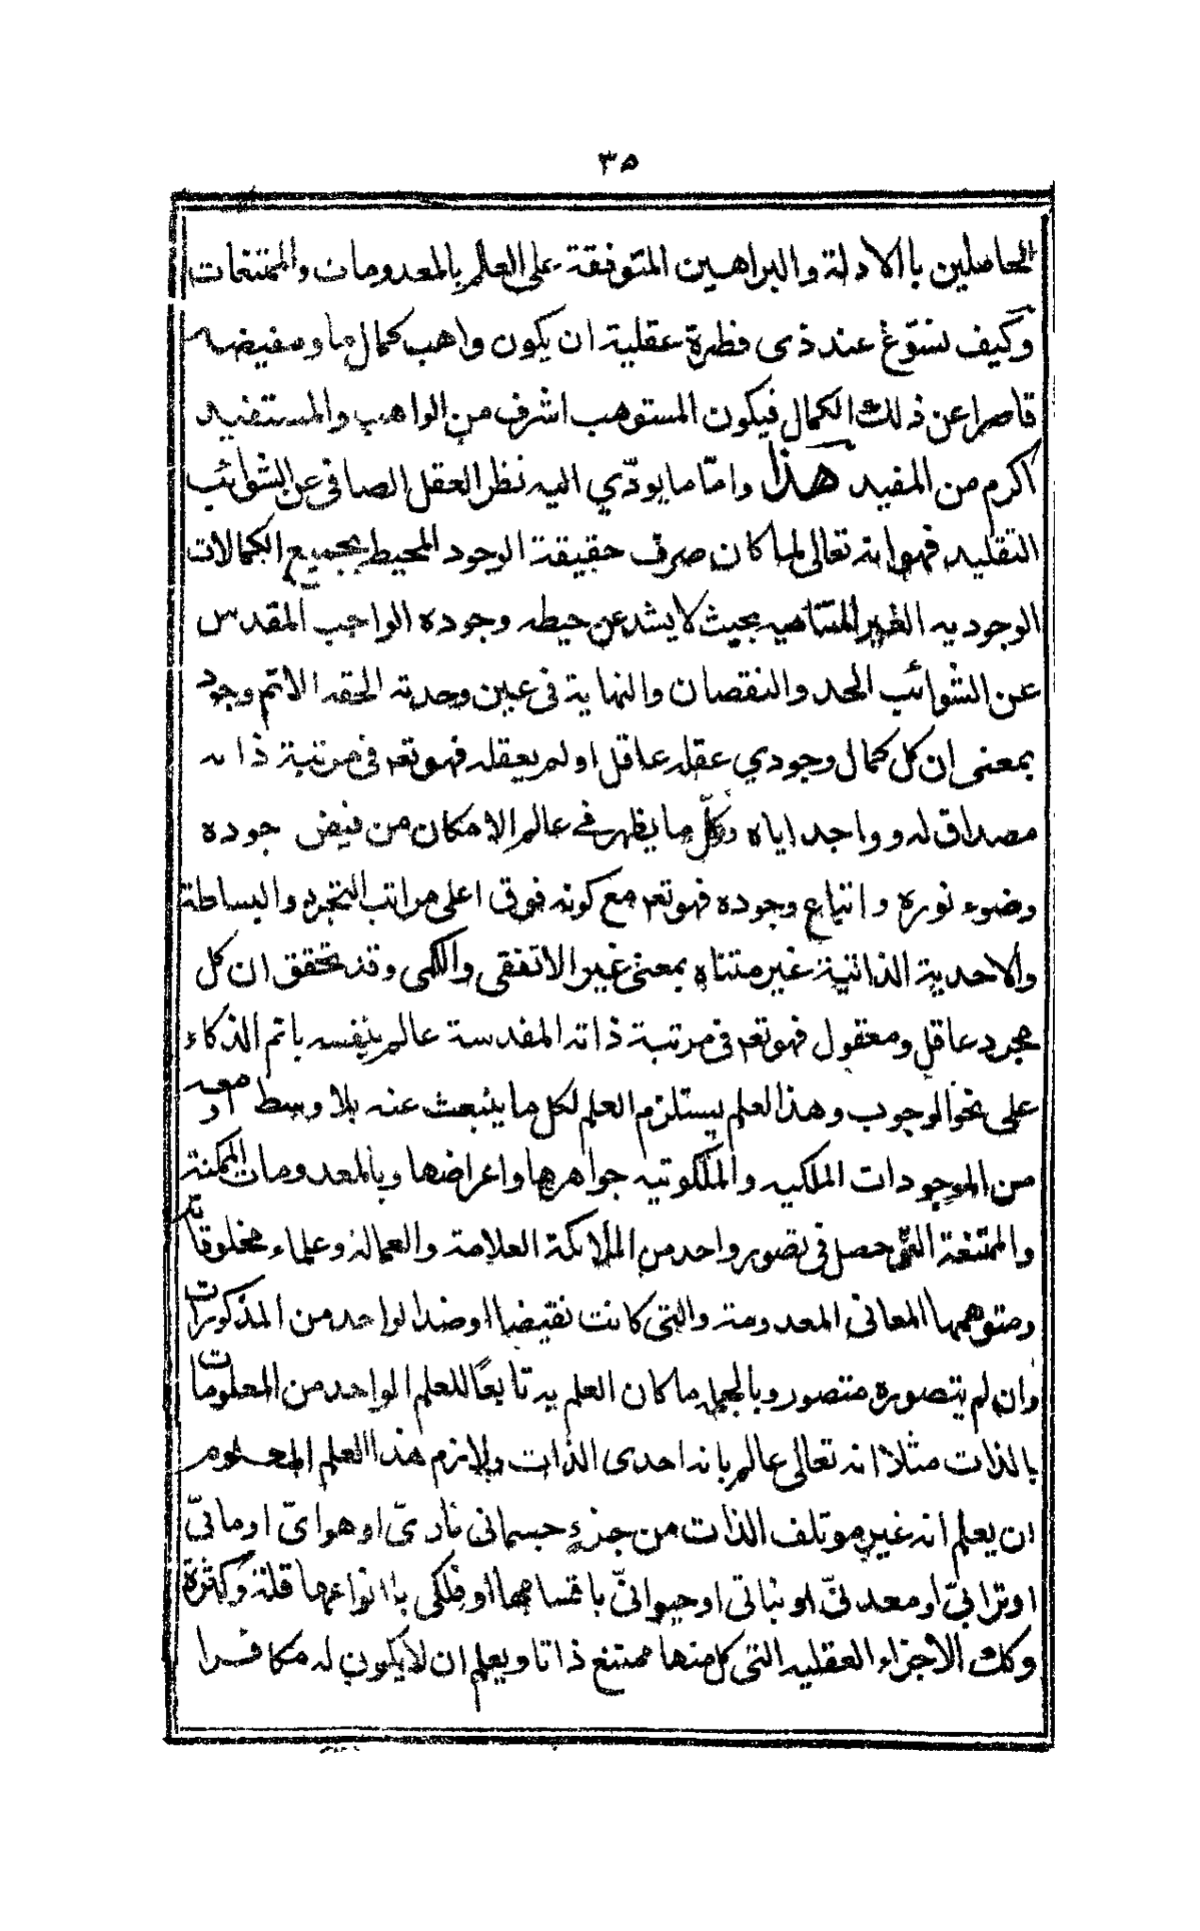 ٣٥
الحاصلين بالادلة والبراهين المتوفقة على العلم بالمعدومات والممتنعات
وكيف نسوّغ عند ذى فطرة عقلية ان يكون واهب كمال ما ومفيضه
قاصرا عن ذلك الكمال فيكون المستوهب اشرف من الواهب والمستفيد
اكرم من المفيد هذا وامّا ما يودّي اليه نظر العقل الصافى عن الشوائب
التقليد فهو انه تعالى لما كان صرف حقيقة الوجود المحيط بجميع الكمالات
الوجوديه الغير المتناهيه بحيث لا يشد عن حيطه وجوده الواجب المقدس
عن الشوائب الحد والنقصان والنهاية فى عين وحدته الحقه الاتم وجود
بمعنى ان كل كمال وجودي عقله عاقل او لم يعقله فهو تعه فى مرتبة ذاته
مصداق له وواجد اياه وكلّ ما يظهر فى عالم الامكان من فيض جوده
وضوء نوره واتباع وجوده فهو تعه مع كونه فوق اعلى مراتب التجرد والبساطة
والاحدية الذاتية غير متناه بمعنى غير الاتفقى والكمى وقد تحقق ان كل
مجرد عاقل ومعقول فهو تعه فى مرتبة ذاته المقدسة عالم بنفسه باتم الذكاء
على نحو الوجوب وهذا العلم يستلزم العلم لكل ما ينبعث عنه بلا وسط او معه
من الموجودات الملكيه والملكوتيه جواهرها واعراضها وبالمعدومات الممكنة
والممتنعة التى حصل فى تصور واحد من الملائكة العلامة والعمالة وعلماء مخلوقاته
ومتوهمها المعانى المعدومة والتى كانت نقيضا او ضدا لواحد من المذكورات
وان لم يتصوره متصور وبالجمله ما كان العلم به تابعًا للعلم الواحد من المعلومات
بالذات مثلا انه تعالى عالم بانه احدى الذات ولازم هذا العلم المعلوم
ان يعلم انه غير موتلف الذات من جزءٍ جسمانى نارىّ او هوائىّ او مائىّ
او ترابىّ او معدنىّ او نباتى او حيوانىّ باقسامها او فلكى بانواعها قلة وكثرة
وكك الاجزاء العقليه التى كل منها ممتنع ذاتا ويعلم ان لا يكون له مكافرا